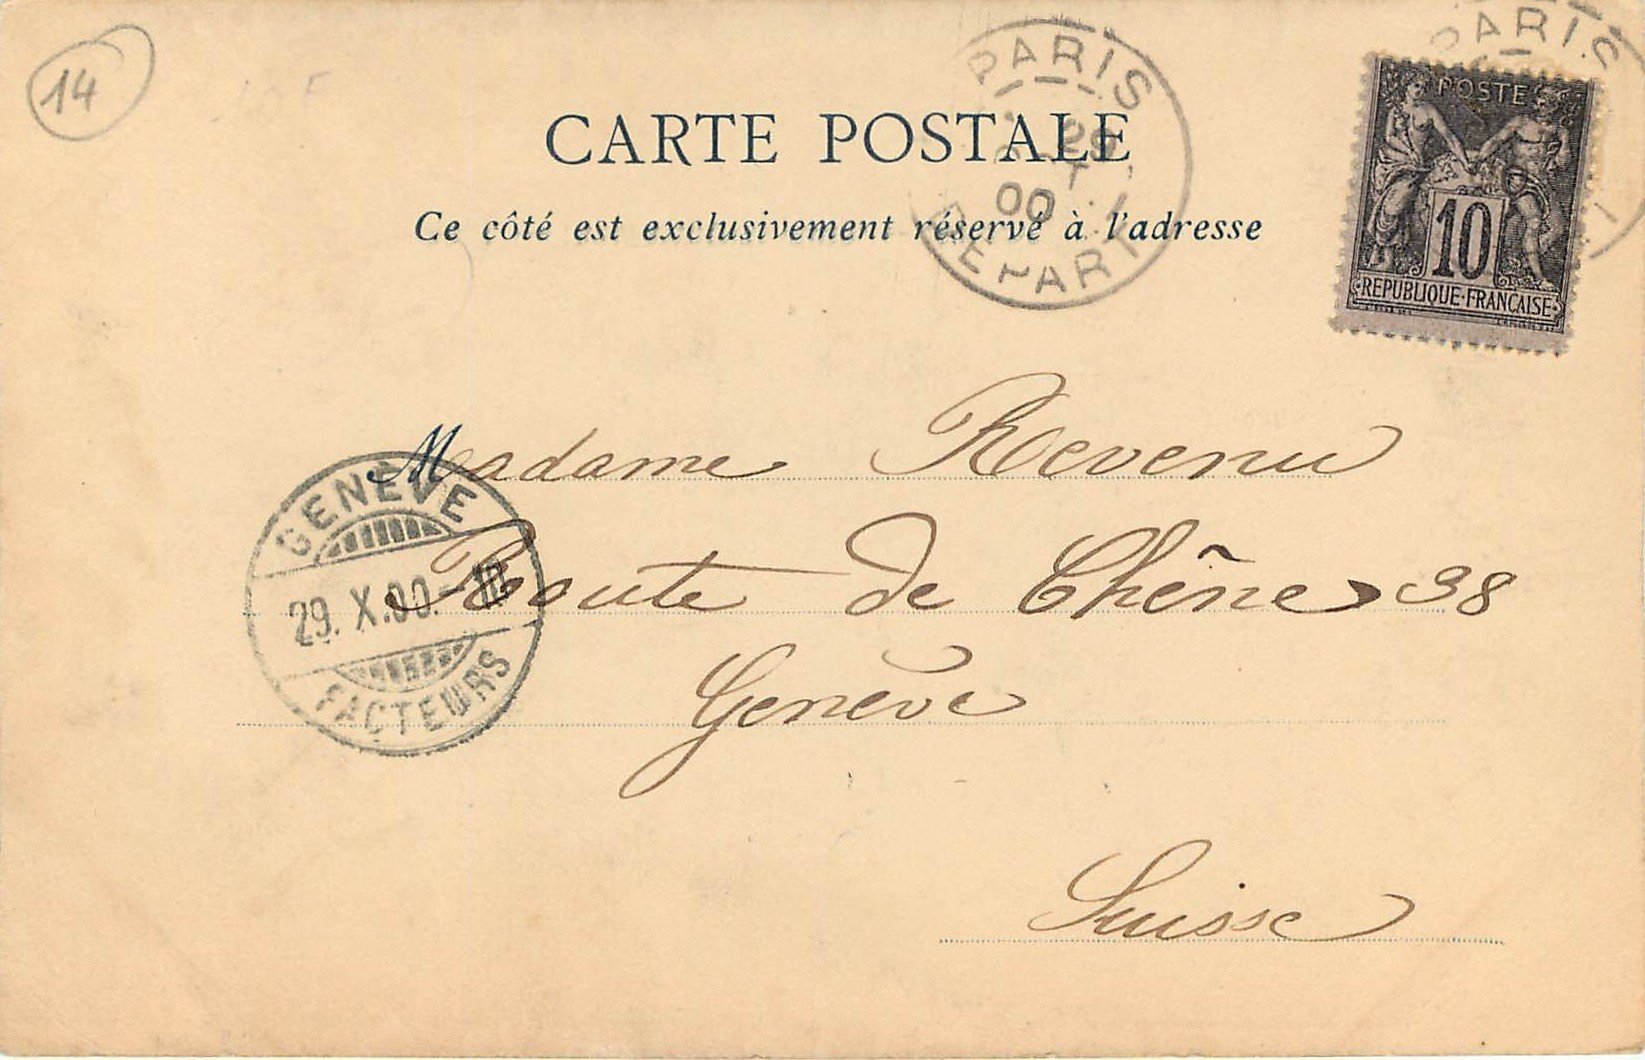 14
CARTE POSTALE
Ce côté est exclusivement réservé à l'adresse
PARIS
00
DEPART
PARIS
POSTES
10
REPUBLIQUE FRANCAISE
Madame Revenu
Route de Chêne 38
Genève
Suisse
GENÈVE
29. X.00.-10
FACTEURS